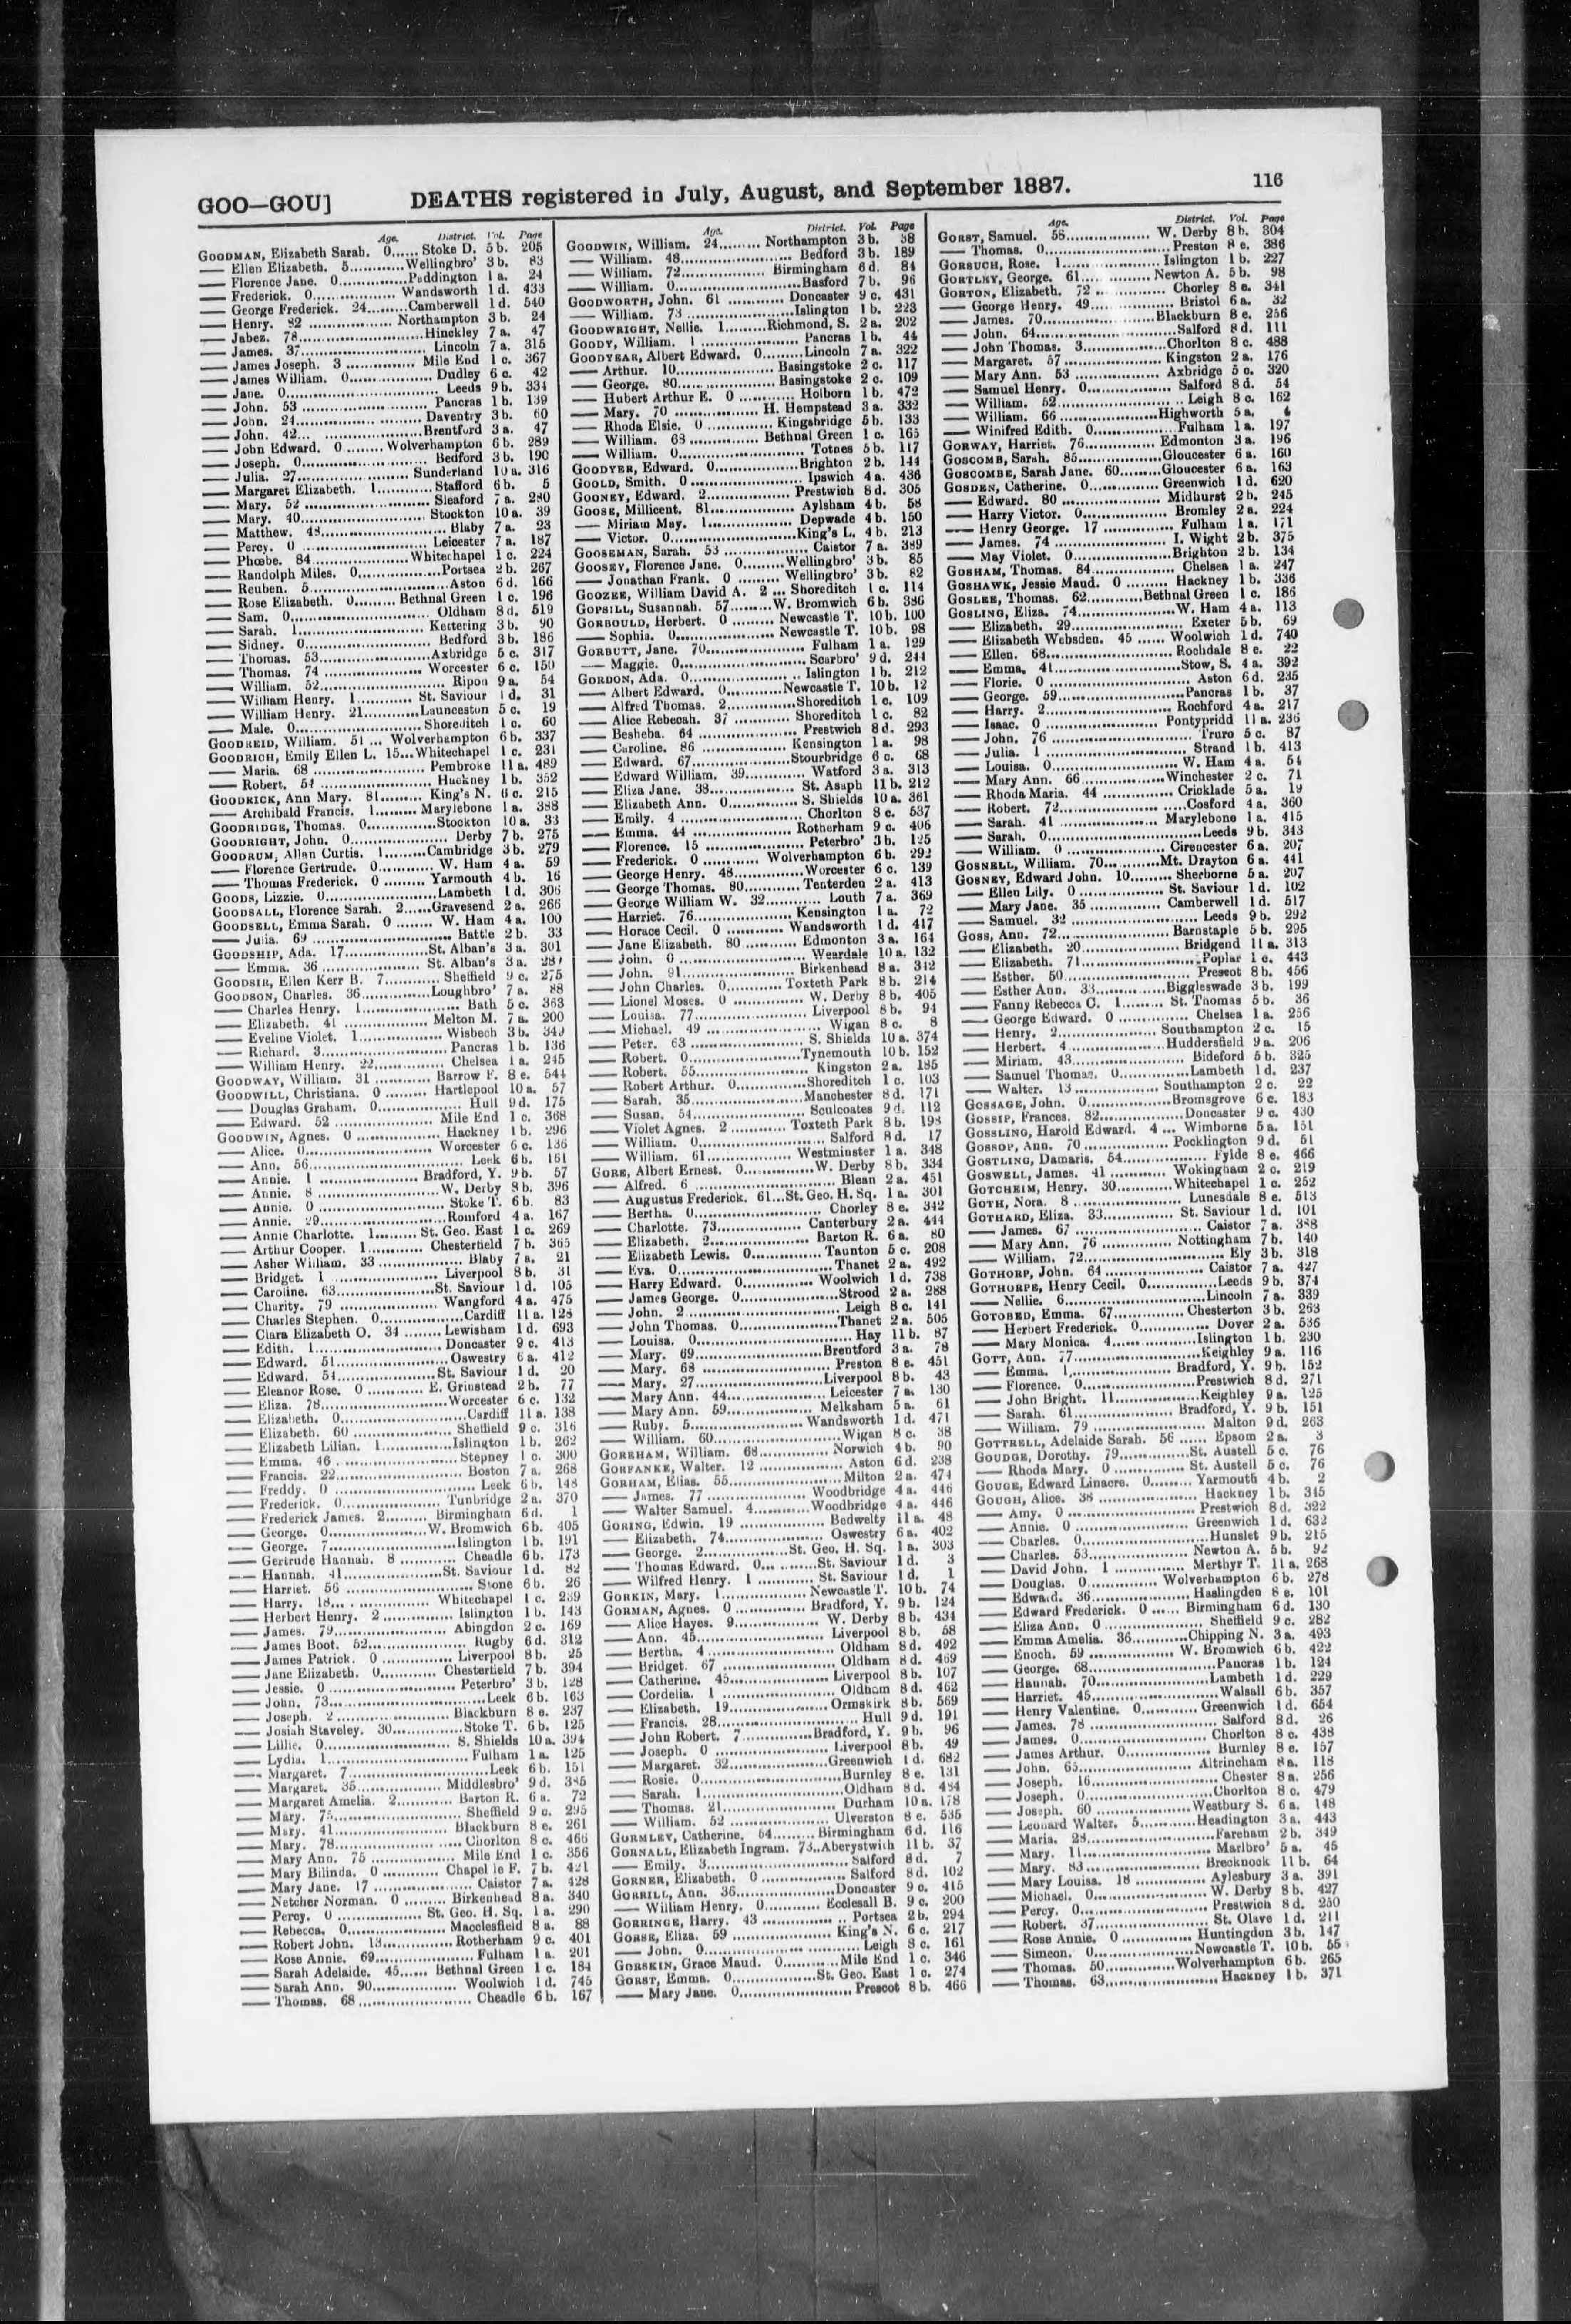 GOO—GOU]
DEATHS registered in July, August, and September 1887.
116
Age. District. Vol. Page
GOODMAN, Elizabeth Sarah. 0...... Stoke D. 5 b. 205
—— Ellen Elizabeth. 5...........Wellingbro' 3 b. 83
—— Florence Jane. 0.............Paddington 1 a. 24
—— Frederick. 0................. Wandsworth 1 d. 433
—— George Frederick. 24........Camberwell 1 d. 540
—— Henry. 82 ................. Northampton 3 b. 24
—— Jabez. 78..........................Hinckley 7 a. 47
—— James. 37......................... Lincoln 7 a. 315
—— James Joseph. 3 .............. Mile End 1 c. 367
—— James William. 0................. Dudley 6 c. 42
—— Jane. 0............................... Leeds 9 b. 334
—— John. 53 ......................... Pancras 1 b. 139
—— John. 24.......................... Daventry 3 b. 60
—— John. 42... .....................Brentford 3 a. 47
—— John Edward. 0 ........ Wolverhampton 6 b. 289
—— Joseph. 0.......................... Bedford 3 b. 190
—— Julia. 27....................... Sunderland 10 a. 316
—— Margaret Elizabeth. 1............ Stafford 6 b. 5
—— Mary. 52 .......................... Sleaford 7 a. 280
—— Mary. 40......................... Stockton 10 a. 39
—— Matthew. 48......................... Blaby 7 a. 23
—— Percy. 0 ......................... Leicester 7 a. 187
—— Phœbe. 84....................Whitechapel 1 c. 224
—— Randolph Miles. 0.................Portsea 2 b. 267
—— Reuben. 5............................Aston 6 d. 166
—— Rose Elizabeth. 0......... Bethnal Green 1 c. 196
—— Sam. 0............................. Oldham 8 d. 519
—— Sarah. 1.......................... Kettering 3 b. 90
—— Sidney. 0.......................... Bedford 3 b. 186
—— Thomas. 53.......................Axbridge 5 c. 317
—— Thomas. 74 .................... Worcester 6 c. 150
—— William. 52.......................... Ripon 9 a. 54
—— William Henry. 1............ St. Saviour 1 d. 31
—— William Henry. 21...........Launceston 5 c. 19
—— Male. 0..........................Shoreditch 1 c. 60
GOODREID, William. 51 ... Wolverhampton 6 b. 337
GOODRICH, Emily Ellen L. 15...Whitechapel 1 c. 231
—— Maria. 68 ....................... Pembroke 11 a. 489
—— Robert. 54 ....................... Hackney 1 b. 352
GOODRICK, Ann Mary. 81......... King's N. 6 c. 215
—— Archibald Francis. 1......... Marylebone 1 a. 388
GOODRIDGE, Thomas. 0...............Stockton 10 a. 33
GOODRIGHT, John. 0....................... Derby 7 b. 275
GOODRUM, Allan Curtis. 1.........Cambridge 3 b. 279
—— Florence Gertrude. 0............. W. Ham 4 a. 59
—— Thomas Frederick. 0 ......... Yarmouth 4 b. 16
GOODS, Lizzie. 0...........................Lambeth 1 d. 306
GOODSALL, Florence Sarah. 2......Gravesend 2 a. 266
GOODSELL, Emma Sarah. 0 ........ W. Ham 4 a. 100
—— Julia. 69 ............................. Battle 2 b. 33
GOODSHIP, Ada. 17..................St. Alban's 3 a. 301
—— Emma. 36 ..................... St. Alban's 3 a.
GOODSIR, Ellen Kerr B. 7............. Sheffield 9 c. 275
GOODSON, Charles. 36...............Loughbro' 7 a. 88
—— Charles Henry. 1.................... Bath 5 c. 363
—— Elizabeth. 41 .................. Melton M. 7 a. 200
—— Eveline Violet. 1.................. Wisbech 3 b. 349
—— Richard. 3.......................... Pancras 1 b. 136
—— William Henry. 22............... Chelsea 1 a. 245
GOODWAY, William. 31 ........... Barrow F. 8 e. 544
GOODWILL, Christiana. 0 ......... Hartlepool 10 a. 57
—— Douglas Graham. 0.................. Hull 9 d. 175
—— Edward. 52 ...................... Mile End 1 c. 368
GOODWIN, Agnes. 0 .................. Hackney 1 b. 296
—— Alice. 0........................... Worcester 6 c. 136
—— Ann. 56............................... Leek 6 b. 151
—— Annie. 1 ..................... Bradford, Y. 9 b. 57
—— Annie. 8 ..........................W. Derby 8 b. 396
—— Annie. 0 .......................... Stoke T. 6 b. 83
—— Annie. 29..........................Romford 4 a. 167
—— Annie Charlotte. 1......... St. Geo. East 1 c. 269
—— Arthur Cooper. 1............ Chesterfield 7 b. 365
—— Asher William. 33 ................... Blaby 7 a. 21
—— Bridget. 1 ....................... Liverpool 8 b. 31
—— Caroline. 63....................St. Saviour 1 d. 105
—— Charity. 79 ..................... Wangford 4 a. 475
—— Charles Stephen. 0..................Cardiff 11 a. 128
—— Clara Elizabeth O. 34 ........ Lewisham 1 d. 693
—— Edith. 1.......................... Doncaster 9 c. 413
—— Edward. 51....................... Oswestry 6 a. 412
—— Edward. 54.................... St. Saviour 1 d. 20
—— Eleanor Rose. 0 ............ E. Grinstead 2 b. 77
—— Eliza. 78..........................Worcester 6 c. 132
—— Elizabeth. 0..........................Cardiff 11 a. 138
—— Elizabeth. 60 ..................... Sheffield 9 c. 316
—— Elizabeth Lilian. 1...............Islington 1 b. 262
—— Emma. 46 ........................ Stepney 1 c. 300
—— Francis. 22.......................... Boston 7 a. 268
—— Freddy. 0 ............................ Leek 6 b. 148
—— Frederick. 0.................... Tunbridge 2 a. 370
—— Frederick James. 2......... Birmingham 6 d. 1
—— George. 0....................W. Bromwich 6 b. 405
—— George. 7.........................Islington 1 b. 191
—— Gertrude Hannah. 8 ........... Cheadle 6 b. 173
—— Hannah. 41....................St. Saviour 1 d. 82
—— Harriet. 56 .......................... Stone 6 b. 26
—— Harry. 18... .................. Whitechapel 1 c. 239
—— Herbert Henry. 2 .............. Islington 1 b. 143
—— James. 79....................... Abingdon 2 c. 169
—— James Boot. 52..................... Rugby 6 d. 312
—— James Patrick. 0 .............. Liverpool 8 b. 25
—— Jane Elizabeth. 0............ Chesterfield 7 b. 394
—— Jessie. 0 .......................... Peterbro' 3 b. 128
—— John. 73............................... Leek 6 b. 163
—— Joseph. 2........................ Blackburn 8 e. 237
—— Josiah Staveley. 30...............Stoke T. 6 b. 125
—— Lillie. 0.......................... S. Shields 10 a. 394
—— Lydia. 1............................. Fulham 1 a. 125
—— Margaret. 7......................... Leek 6 b. 151
—— Margaret. 35................. Middlesbro' 9 d. 385
—— Margaret Amelia. 2............ Barton R. 6 a. 72
—— Mary. 75......................... Sheffield 9 c. 295
—— Mary. 41 ....................... Blackburn 8 e. 261
—— Mary. 78.......................... Chorlton 8 c. 466
—— Mary Ann. 75 .................. Mile End 1 c. 356
—— Mary Bilinda. 0 ............ Chapel le F. 7 b. 421
—— Mary Jane. 17 ..................... Caistor 7 a. 428
—— Netcher Norman. 0 ......... Birkenhead 8 a. 340
—— Percy. 0 .................. St. Geo. H. Sq. 1 a. 290
—— Rebecca. 0.................... Macclesfield 8 a. 88
—— Robert John. 13............... Rotherham 9 c. 401
—— Rose Annie. 69..................... Fulham 1 a. 201
—— Sarah Adelaide. 45...... Bethnal Green 1 c. 184
—— Sarah Ann. 90.................. Woolwich 1 d. 745
—— Thomas. 68 ....................... Cheadle 6 b. 167
Age. District. Vol. Page
GOODWIN, William. 24......... Northampton 3 b. 38
—— William. 48....................... Bedford 3 b. 189
—— William. 72.................. Birmingham 6 d. 84
—— William. 0..........................Basford 7 b. 96
GOODWORTH, John. 61 ............ Doncaster 9 c. 431
—— William. 73 ......................Islington 1 b. 223
GOODWRIGHT, Nellie. 1.........Richmond, S. 2 a. 202
GOODY, William. 1 ..................... Pancras 1 b. 44
GOODYEAR, Albert Edward. 0.........Lincoln 7 a. 322
—— Arthur. 10.................... Basingstoke 2 c. 117
—— George. 80.................... Basingstoke 2 c. 109
—— Hubert Arthur E. 0 ............ Holborn 1 b. 472
—— Mary. 70 .................. H. Hempstead 3 a. 332
—— Rhoda Elsie. 0 ............. Kingsbridge 5 b. 133
—— William. 63 ................ Bethnal Green 1 c. 165
—— William. 0......................... Totnes 5 b. 117
GOODYER, Edward. 0..................Brighton 2 b. 144
GOOLD, Smith. 0 ......................... Ipswich 4 a. 436
GOONEY, Edward. 2.................. Prestwich 8 d. 305
GOOSE, Millicent. 81................... Aylsham 4 b. 58
—— Miriam May. 1.................. Depwade 4 b. 150
—— Victor. 0..........................King's L. 4 b. 213
GOOSEMAN, Sarah. 53 .................. Caistor 7 a. 389
GOOSEY, Florence Jane. 0.........Wellingbro' 3 b. 85
—— Jonathan Frank. 0 ......... Wellingbro' 3 b. 82
GOOZEE, William David A. 2 ... Shoreditch 1 c. 114
GOPSILL, Susannah. 57.........W. Bromwich 6 b. 386
GORBOULD, Herbert. 0 ......... Newcastle T. 10 b. 100
—— Sophia. 0.................... Newcastle T. 10 b. 98
GORBUTT, Jane. 70..................... Fulham 1 a. 129
—— Maggie. 0......................... Scarbro' 9 d. 244
GORDON, Ada. 0....................... Islington 1 b. 212
—— Albert Edward. 0...........Newcastle T. 10 b. 12
—— Alfred Thomas. 2...............Shoreditch 1 c. 109
—— Alice Rebecah. 37 ............ Shoreditch 1 c. 82
—— Besheba. 64 .................... Prestwich 8 d. 293
—— Caroline. 86 .................. Kensington 1 a. 98
—— Edward. 67....................Stourbridge 6 c. 68
—— Edward William. 39............ Watford 3 a. 313
—— Eliza Jane. 38.................. St. Asaph 11 b. 212
—— Elizabeth Ann. 0............... S. Shields 10 a. 361
—— Emily. 4 ......................... Chorlton 8 c. 537
—— Emma. 44 .................... Rotherham 9 c. 406
—— Florence. 15 .................... Peterbro' 3 b. 125
—— Frederick. 0 ............ Wolverhampton 6 b. 292
—— George Henry. 48..............Worcester 6 c. 139
—— George Thomas. 80............ Tenterden 2 a. 413
—— George William W. 32............ Louth 7 a. 369
—— Harriet. 76.................... Kensington 1 a. 72
—— Horace Cecil. 0 ............ Wandsworth 1 d. 417
—— Jane Elizabeth. 80 ........... Edmonton 3 a. 164
—— John. 0 ......................... Weardale 10 a. 132
—— John. 91....................... Birkenhead 8 a. 312
—— John Charles. 0............ Toxteth Park 8 b. 214
—— Lionel Moses. 0 ............... W. Derby 8 b. 405
—— Louisa. 77....................... Liverpool 8 b. 94
—— Michael. 49 ......................... Wigan 8 c. 8
—— Peter. 63 ....................... S. Shields 10 a. 374
—— Robert. 0.......................Tynemouth 10 b. 152
—— Robert. 55....................... Kingston 2 a. 185
—— Robert Arthur. 0...............Shoreditch 1 c. 103
—— Sarah. 35.......................Manchester 8 d. 171
—— Susan. 54....................... Sculcoates 9 d. 112
—— Violet Agnes. 2 ............ Toxteth Park 8 b. 198
—— William. 0......................... Salford 8 d. 17
—— William. 61.................. Westminster 1 a. 348
GORE, Albert Ernest. 0...............W. Derby 8 b. 334
—— Alfred. 6 ............................ Blean 2 a. 451
—— Augustus Frederick. 61...St. Geo. H. Sq. 1 a. 301
—— Bertha. 0.......................... Chorley 8 e. 342
—— Charlotte. 73.................. Canterbury 2 a. 444
—— Elizabeth. 2..................... Barton R. 6 a. 80
—— Elizabeth Lewis. 0............... Taunton 5 c. 208
—— Eva. 0............................. Thanet 2 a. 492
—— Harry Edward. 0............... Woolwich 1 d. 738
—— James George. 0...................Strood 2 a. 288
—— John. 2 ............................. Leigh 8 c. 141
—— John Thomas. 0....................Thanet 2 a. 505
—— Louisa. 0............................... Hay 11 b. 87
—— Mary. 69.......................Brentford 3 a. 78
—— Mary. 68 ......................... Preston 8 e. 451
—— Mary. 27.......................Liverpool 8 b. 43
—— Mary Ann. 44.................. Leicester 7 a. 130
—— Mary Ann. 59.................. Melksham 5 a. 61
—— Ruby. 5....................... Wandsworth 1 d. 471
—— William. 60.......................... Wigan 8 c. 38
GOREHAM, William. 68............... Norwich 4 b. 90
GORFANKE, Walter. 12 .................. Aston 6 d. 238
GORHAM, Elias. 55....................... Milton 2 a. 474
—— James. 77 .................... Woodbridge 4 a. 446
—— Walter Samuel. 4............Woodbridge 4 a. 446
GORING, Edwin. 19 .................. Bedwelty 11 a. 48
—— Elizabeth. 74..................... Oswestry 6 a. 402
—— George. 2..................St. Geo. H. Sq. 1 a. 303
—— Thomas Edward. 0............ St. Saviour 1 d. 3
—— Wilfred Henry. 1 ............ St. Saviour 1 d. 1
GORKIN, Mary. 1..................Newcastle T. 10 b. 74
GORMAN, Agnes. 0 ............... Bradford, Y. 9 b. 124
—— Alice Hayes. 9.................. W. Derby 8 b. 434
—— Ann. 45.......................... Liverpool 8 b. 58
—— Bertha. 4 .......................... Oldham 8 d. 492
—— Bridget. 67 ....................... Oldham 8 d. 469
—— Catherine. 45.................... Liverpool 8 b. 107
—— Cordelia. 1 ....................... Oldham 8 d. 462
—— Elizabeth. 19.................... Ormskirk 8 b. 569
—— Francis. 28............................. Hull 9 d. 191
—— John Robert. 7...............Bradford, Y. 9 b. 96
—— Joseph. 0 ....................... Liverpool 8 b. 49
—— Margaret. 32....................Greenwich 1 d. 682
—— Rosie. 0.......................... Burnley 8 e. 131
—— Sarah. 1..........................Oldham 8 d. 484
—— Thomas. 21....................... Durham 10 a. 178
—— William. 52 .................... Ulverston 8 e. 535
GORMLEY, Catherine. 54......... Birmingham 6 d. 116
GORNALL, Elizabeth Ingram. 73..Aberystwith 11 b. 37
—— Emily. 3.......................... Salford 8 d. 7
GORNER, Elizabeth. 0 .................. Salford 8 d. 102
GORRILL, Ann. 36....................Doncaster 9 c. 415
—— William Henry. 0............ Ecclesall B. 9 c. 200
GORRINGE, Harry. 43 ................. Portsea 2 b. 294
GORSE, Eliza. 59 ..................... King's N. 6 c. 217
—— John. 0............................. Leigh 8 c. 161
GORSKIN, Grace Maud. 0............Mile End 1 c. 346
GORST, Emma. 0..................St. Geo. East 1 c. 274
—— Mary Jane. 0...................... Prescot 8 b. 466
Age. District. Vol. Page
GORST, Samuel. 58.................. W. Derby 8 b. 304
—— Thomas. 0.......................... Preston 8 e. 386
GORSUCH, Rose. 1..................... Islington 1 b. 227
GORTLEY, George. 61............... Newton A. 5 b. 98
GORTON, Elizabeth. 72 ............... Chorley 8 e. 341
—— George Henry. 49.................. Bristol 6 a. 32
—— James. 70.......................Blackburn 8 e. 256
—— John. 64............................Salford 8 d. 111
—— John Thomas. 3..................Chorlton 8 c. 488
—— Margaret. 57.................... Kingston 2 a. 176
—— Mary Ann. 53 .................. Axbridge 5 c. 320
—— Samuel Henry. 0.................. Salford 8 d. 54
—— William. 52......................... Leigh 8 c. 162
—— William. 66.....................Highworth 5 a. 4
—— Winifred Edith. 0.................. Fulham 1 a. 197
GORWAY, Harriet. 76............... Edmonton 3 a. 196
GOSCOMB, Sarah. 85..................Gloucester 6 a. 160
GOSCOMBE, Sarah Jane. 60.........Gloucester 6 a. 163
GOSDEN, Catherine. 0............... Greenwich 1 d. 620
—— Edward. 80 ..................... Midhurst 2 b. 245
—— Harry Victor. 0.................. Bromley 2 a. 224
—— Henry George. 17 ............... Fulham 1 a. 171
—— James. 74 ....................... I. Wight 2 b. 375
—— May Violet. 0....................Brighton 2 b. 134
GOSHAM, Thomas. 84.................. Chelsea 1 a. 247
GOSHAWK, Jessie Maud. 0 ......... Hackney 1 b. 336
GOSLEE, Thomas. 62............Bethnal Green 1 c. 186
GOSLING, Eliza. 74.....................W. Ham 4 a. 113
—— Elizabeth. 29....................... Exeter 5 b. 69
—— Elizabeth Websden. 45 ...... Woolwich 1 d. 740
—— Ellen. 68.......................... Rochdale 8 e. 22
—— Emma. 41.......................Stow, S. 4 a. 392
—— Florie. 0 ............................ Aston 6 d. 235
—— George. 59.......................Pancras 1 b. 37
—— Harry. 2......................... Rochford 4 a. 217
—— Isaac. 0 ....................... Pontypridd 11 a. 236
—— John. 76 ........................... Truro 5 c. 87
—— Julia. 1 ........................... Strand 1 b. 413
—— Louisa. 0.......................... W. Ham 4 a. 54
—— Mary Ann. 66 ................Winchester 2 c. 71
—— Rhoda Maria. 44 ............... Cricklade 5 a. 19
—— Robert. 72......................... Cosford 4 a. 360
—— Sarah. 41 ..................... Marylebone 1 a. 415
—— Sarah. 0............................. Leeds 9 b. 343
—— William. 0 .................... Cirencester 6 a. 207
GOSNELL, William. 70............Mt. Drayton 6 a. 441
GOSNEY, Edward John. 10......... Sherborne 5 a. 207
—— Ellen Lily. 0 .................. St. Saviour 1 d. 102
—— Mary Jane. 35 ............... Camberwell 1 d. 517
—— Samuel. 32 .......................... Leeds 9 b. 292
GOSS, Ann. 72..........................Barnstaple 5 b. 295
—— Elizabeth. 20.................... Bridgend 11 a. 313
—— Elizabeth. 71.......................Poplar 1 c. 443
—— Esther. 50 ......................... Prescot 8 b. 456
—— Esther Ann. 33...............Biggleswade 3 b. 199
—— Fanny Rebecca C. 1......... St. Thomas 5 b. 36
—— George Edward. 0 ............... Chelsea 1 a. 256
—— Henry. 2..................... Southampton 2 c. 15
—— Herbert. 4 .................... Huddersfield 9 a. 206
—— Miriam. 43....................... Bideford 5 b. 325
—— Samuel Thomas. 0...............Lambeth 1 d. 237
—— Walter. 13 .................. Southampton 2 c. 22
GOSSAGE, John. 0..................Bromsgrove 6 c. 183
GOSSIP, Frances. 82.................. Doncaster 9 c. 430
GOSSLING, Harold Edward. 4 ... Wimborne 5 a. 151
GOSSOP, Ann. 70 .................. Pocklington 9 d. 51
GOSTLING, Damaris. 54.................. Fylde 8 e. 466
GOSWELL, James. 41 ............... Wokingham 2 c. 219
GOTCHEIM, Henry. 30............Whitechapel 1 c. 252
GOTH, Nora. 8 ....................... Lunesdale 8 e. 513
GOTHARD, Eliza. 33............... St. Saviour 1 d. 101
—— James. 67 ......................... Caistor 7 a. 388
—— Mary Ann. 76 ............... Nottingham 7 b. 140
—— William. 72.......................... Ely 3 b. 318
GOTHORP, John. 64 .................... Caistor 7 a. 427
GOTHORPE, Henry Cecil. 0............ Leeds 9 b. 374
—— Nellie. 6..........................Lincoln 7 a. 339
GOTOBED, Emma. 67............... Chesterton 3 b. 263
—— Herbert Frederick. 0............... Dover 2 a. 536
—— Mary Monica. 4...............Islington 1 b. 230
GOTT, Ann. 77..........................Keighley 9 a. 116
—— Emma. 1..................... Bradford, Y. 9 b. 152
—— Florence. 0......................Prestwich 8 d. 271
—— John Bright. 11..................Keighley 9 a. 125
—— Sarah. 61..................... Bradford, Y. 9 b. 151
—— William. 79 ....................... Malton 9 d. 263
GOTTRELL, Adelaide Sarah. 56 ...... Epsom 2 a. 3
GOUDGE, Dorothy. 79...............St. Austell 5 c. 76
—— Rhoda Mary. 0 ............... St. Austell 5 c. 76
GOUGE, Edward Linacre. 0......... Yarmouth 4 b. 2
GOUGH, Alice. 38 ....................... Hackney 1 b. 315
—— Amy. 0 .......................... Prestwich 8 d. 322
—— Annie. 0 ....................... Greenwich 1 d. 632
—— Charles. 0.......................... Hunslet 9 b. 215
—— Charles. 53..................... Newton A. 5 b. 92
—— David John. 1 ............... Merthyr T. 11 a. 268
—— Douglas. 0............... Wolverhampton 6 b. 278
—— Edward. 36.................... Haslingden 8 e. 101
—— Edward Frederick. 0 ...... Birmingham 6 d. 130
—— Eliza Ann. 0 ..................... Sheffield 9 c. 282
—— Emma Amelia. 36............Chipping N. 3 a. 493
—— Enoch. 59 .................. W. Bromwich 6 b. 422
—— George. 68.........................Pancras 1 b. 124
—— Hannah. 70.......................Lambeth 1 d. 229
—— Harriet. 45.........................Walsall 6 b. 357
—— Henry Valentine. 0............ Greenwich 1 d. 654
—— James. 78 ......................... Salford 8 d. 26
—— James. 0.......................... Chorlton 8 c. 438
—— James Arthur. 0.................. Burnley 8 e. 157
—— John. 65....................... Altrincham 8 a. 118
—— Joseph. 16......................... Chester 8 a. 256
—— Joseph. 0..........................Chorlton 8 c. 479
—— Joseph. 60 .................... Westbury S. 6 a. 148
—— Leonard Walter. 5............Headington 3 a. 443
—— Maria. 28..........................Fareham 2 b. 349
—— Mary. 11.......................... Marlbro' 5 a. 45
—— Mary. 83 ....................... Brecknock 11 b. 64
—— Mary Louisa. 18 ............... Aylesbury 3 a. 391
—— Michael. 0....................... W. Derby 8 b. 427
—— Percy. 0.......................... Prestwich 8 d. 250
—— Robert. 37....................... St. Olave 1 d. 211
—— Rose Annie. 0 ............... Huntingdon 3 b. 147
—— Simeon. 0....................Newcastle T. 10 b. 55
—— Thomas. 50...............Wolverhampton 6 b. 265
—— Thomas. 63....................... Hackney 1 b. 371